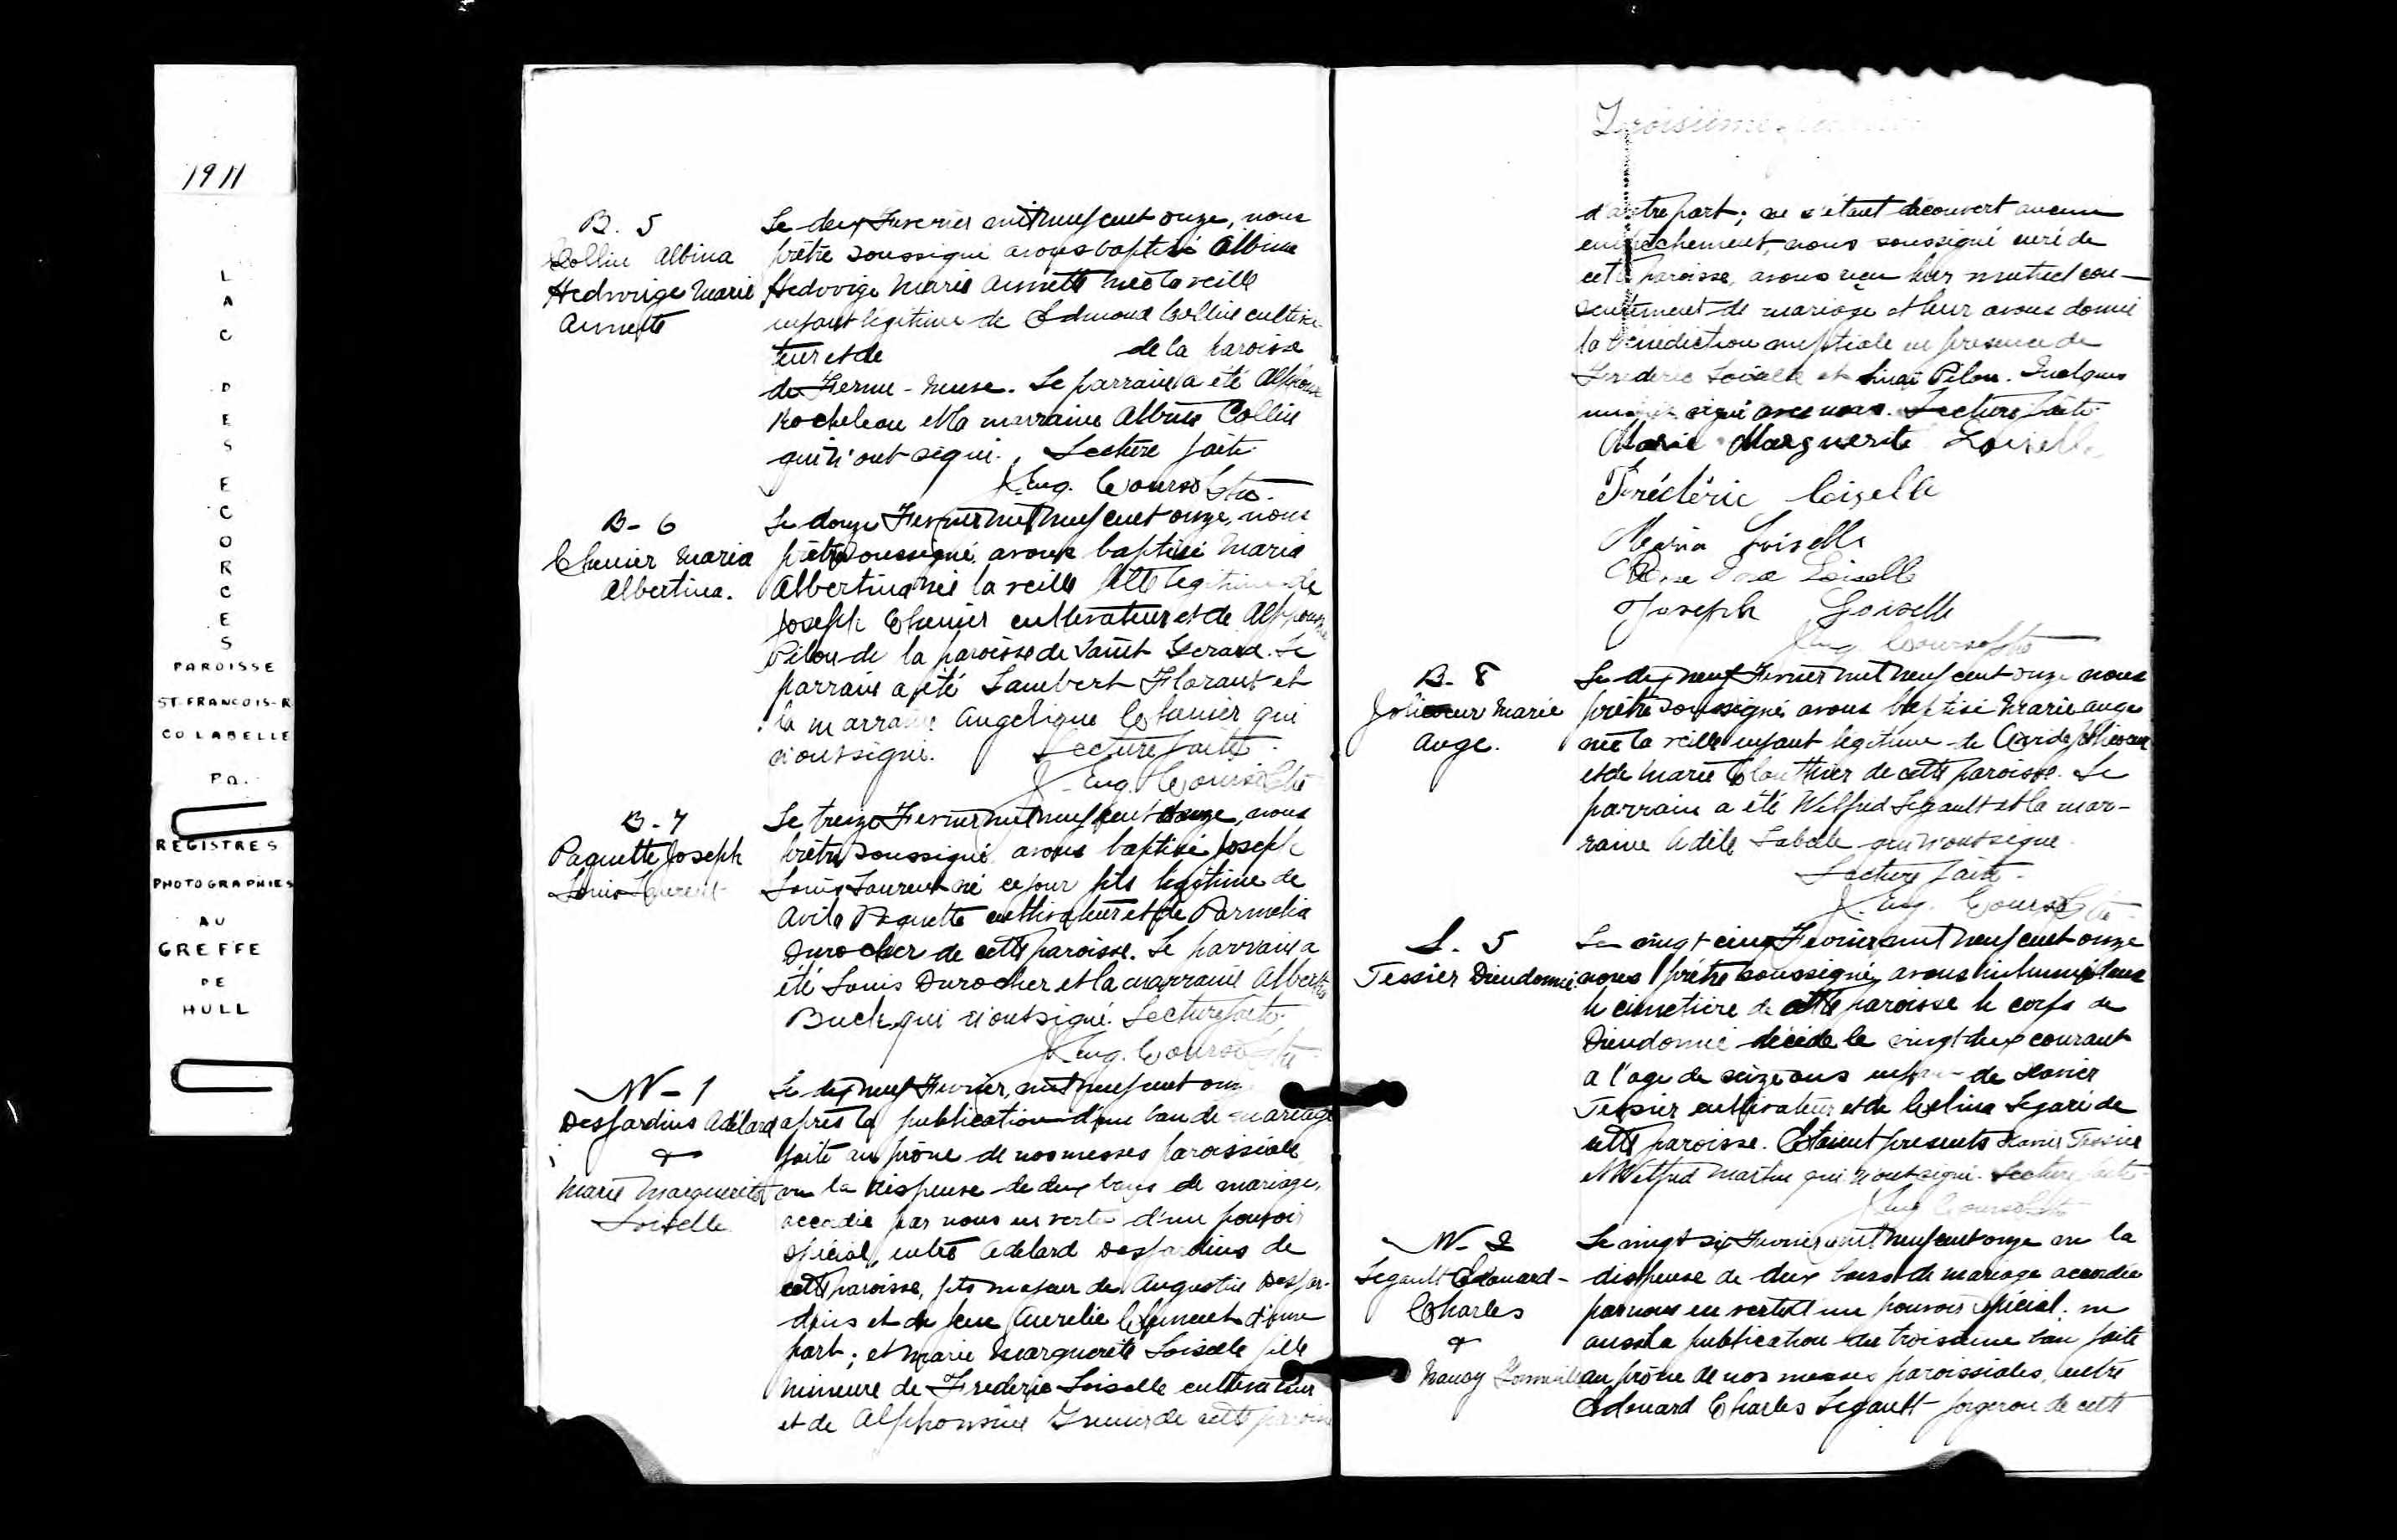 1911
LAC DES ECORCES
PAROISSE
ST-FRANCOIS-R
CO LABELLE
PQ.
REGISTRES
PHOTOGRAPHIES
AU
GREFFE
DE
HULL
B. 5
Collin Albina
Hedwige Marie
Annette
Le deux Fevrier mil neuf cent onze, nous
prêtre soussigné avons baptisé Albina
Hedwige Marie Annette née la veille
enfant légitime de Edmond Collin cultiva-
teur et de de la paroisse
de Ferme-Neuve. Le parrain a été Alphonse
Rocheleau et la marraine Albina Collin
qui n'ont signé. Lecture faite.
J. Eug. Coursol Ptre.
B- 6
Chenier Maria
Albertina.
Le douze Fevrier mil neuf cent onze, nous
prêtre soussigné avons baptisé Maria
Albertina née la veille fille legitime de
Joseph Chenier cultivateur et de Alphonsine
Pilon de la paroisse de Saint Gerard. Le
parrain a été Lambert Florant et
la marraine Angelique Chenier qui
n'ont signé. Lecture faite.
J. Eug. Coursol Ptre
B- 7
Paquette Joseph
Louis Laurent
Le treize Fevrier mil neuf cent onze, nous
prêtre soussigné avons baptisé Joseph
Louis Laurent né ce jour fils légitime de
Avila Paquette cultivateur et de Parmelia
Durocher de cette paroisse. Le parrain a
été Louis Durocher et la marraine Albertine
Buck qui n'ont signé. Lecture faite.
J. Eug. Coursol Ptre
M - 1
Desjardins Adélard
&
Marie Marguerite
Loiselle
Le dix neuf Fevrier, mil neuf cent onze
après la publication d'un ban de mariage
faite au prône de nos messes paroissiale
vu la dispense de deux bans de mariage,
accordée par nous en vertu d'un pouvoir
spécial, entre Adelard Desjardins de
cette paroisse, fils majeur de Augustin Desjar-
dins et de feue Aurelie Clement d'une
part; et Marie Marguerite Loiselle fille
mineure de Frederic Loiselle cultivateur
et de Alphonsine Grenier de cette paroisse
Troisième
d'autre part; ne s'étant découvert aucun
empêchement, nous soussigné curé de
cette paroisse, avons reçu leur mutuel con-
sentement de mariage et leur avons donné
la bénédiction nuptiale en presence de
Frederic Loiselle et Pilon. Quelques
uns ont signé avec nous. Lecture faite.
Marie Marguerite Loiselle
Frédéric Loiselle
Maria Loiselle
Rose Loiselle
Joseph Loiselle
J. Eug. Coursol Ptre
B- 8
Jolicoeur Marie
Ange.
Le dix neuf Fevrier mil neuf cent onze nous
prêtre soussigné avons baptisé Marie Ange
née la veille enfant légitime de Ovide Jolicoeur
et de Marie Clouthier de cette paroisse. Le
parrain a été Wilfrid Legault et la mar-
raine Adèle Labelle qui n'ont signé.
Lecture faite.
J. Eug. Coursol Ptre
S. 5
Tessier Dieudonné
Le vingt cinq Fevrier mil neuf cent onze
nous prêtre soussigné avons inhumé dans
le cimetière de cette paroisse le corps de
Dieudonné décédé le vingt deux courant
a l'age de seize ans enfant de Xavier
Tessier cultivateur et de Celina Legaré de
cette paroisse. Etaient presents Xavier Tessier
et Wilfrid Martin qui n'ont signé. Lecture faite.
J. Eug Coursol Ptre
M- 2
Legault Edouard-
Charles
&
Nancy
Le vingt six Fevrier mil neuf cent onze vu la
dispense de deux bans de mariage accordée
par nous en vertu d'un pouvoir spécial. vu
aussi la publication du troisième ban faite
au prône de nos messes paroissiales, entre
Edouard Charles Legault forgeron de cette